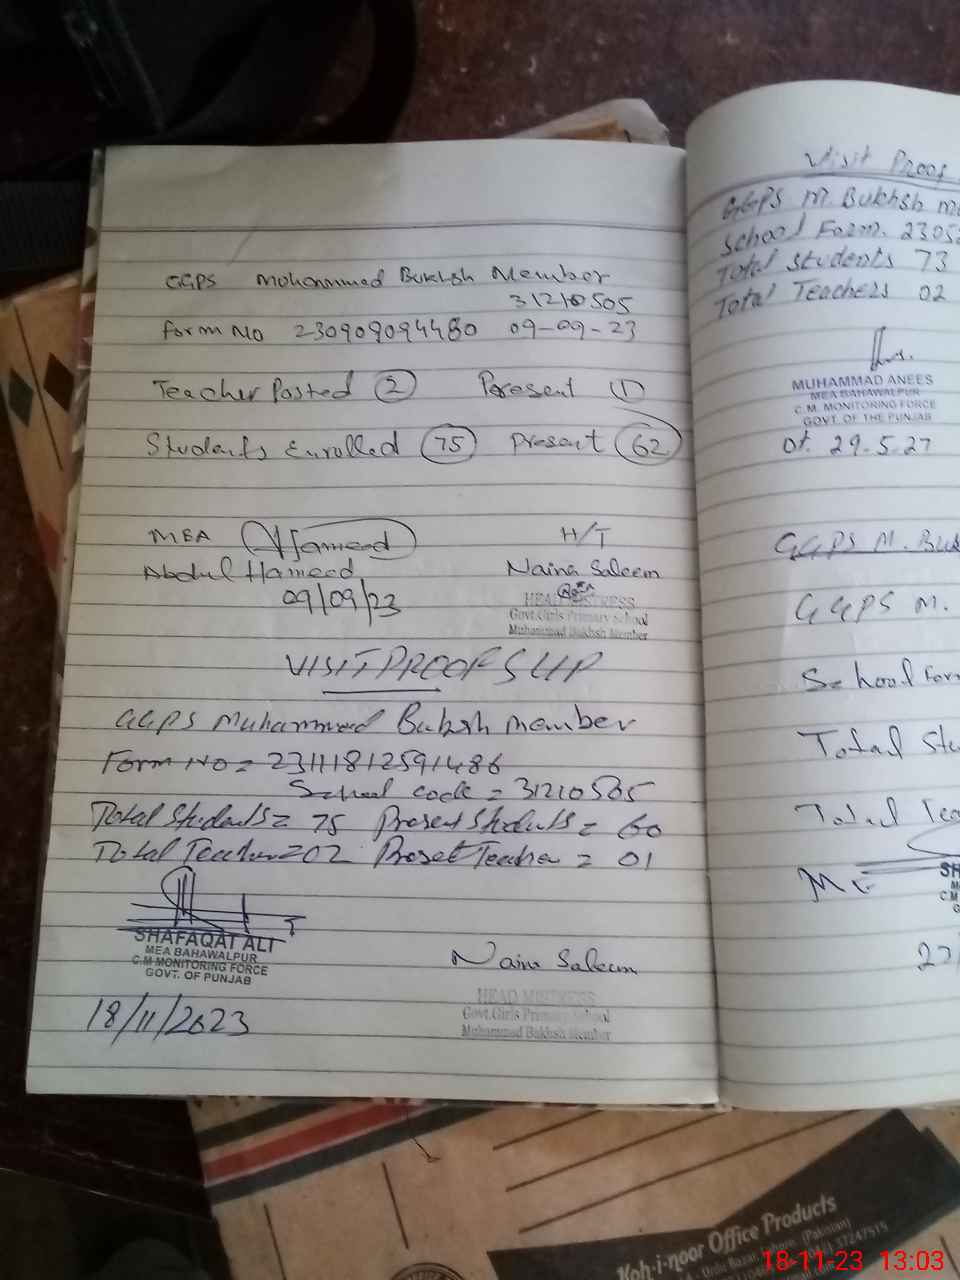 GGPS Mohammad Bukhsh Member
31210505
Form No 230909094480 09-09-23
Teacher Posted 2 Present 1
Students Enrolled 75 Present 62
MEA Hameed H/T
Abdul Hameed Naina Saleem
09/09/23
HEAD MISTRESS
Govt.Girls Primary School
Muhammad Bakhsh Member
VISIT PROOF SLIP
GGPS Muhammad Buksh member
Form No = 23111812591486
School code = 31210505
Total Students = 75 Present Students = 60
Total Teacher = 02 Preset Teacher = 01
SHAFAQAT ALI
MEA BAHAWALPUR
C.M MONITORING FORCE
GOVT. OF PUNJAB
18/11/2023
Naina Saleem
HEAD MISTRESS
Govt.Girls Primary School
Muhammad Bakhsh Member
Visit Proof
GGPS M. Bukhsh
School Form. 2305
Total students 73
Total Teachers 02
MUHAMMAD ANEES
MEA BAHAWALPUR
C.M. MONITORING FORCE
GOVT. OF THE PUNJAB
Dt. 29-5-27
GGPS M. Buk
GGPS M.
School Form
Total Stu
Total Tea
SH
C.M
Koh-i-noor Office Products
(Pakistan)
37247515
18-11-23 13:03